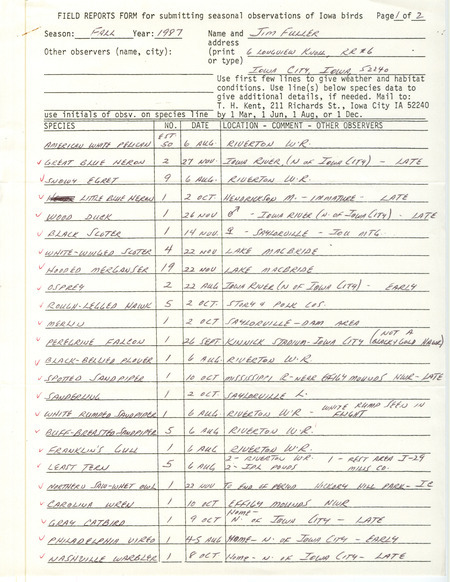 FIELD REPORTS FORM for submitting seasonal observations of Iowa birds Page 1 of 2
Season: FALL Year: 1987 Name and JIM FULLER
address
Other observers (name, city): (print 6 LONGVIEW KNOLL, RR#6
or type)
IOWA CITY, IOWA 52240
Use first few lines to give weather and habitat
conditions. Use line(s) below species data to
give additional details, if needed. Mail to:
T. H. Kent, 211 Richards St., Iowa City IA 52240
use initials of obsv. on species line by 1 Mar, 1 Jun, 1 Aug, or 1 Dec.
SPECIES NO. DATE LOCATION - COMMENT - OTHER OBSERVERS
AMERICAN WHITE PELICAN EST 50 6 AUG RIVERTON W.R.
GREAT BLUE HERON 2 27 NOV IOWA RIVER (N OF IOWA CITY) - LATE
SNOWY EGRET 9 6 AUG RIVERTON W.R.
LITTLE BLUE HERON 1 2 OCT HENDRICKSON M. - IMMATURE - LATE
WOOD DUCK 1 26 NOV ♂ - IOWA RIVER (N OF IOWA CITY) - LATE
BLACK SCOTER 1 14 NOV ♀ - SAYLORVILLE - IOU MTG.
WHITE-WINGED SCOTER 4 22 NOV LAKE MACBRIDE
HOODED MERGANSER 19 22 NOV LAKE MACBRIDE
OSPREY 2 22 AUG IOWA RIVER (N OF IOWA CITY) - EARLY
ROUGH-LEGGED HAWK 5 2 OCT STORY & POLK COS.
MERLIN 1 2 OCT SAYLORVILLE - DAM AREA
PEREGRINE FALCON 1 26 SEPT KINNICK STADIUM - IOWA CITY (NOT A BLACK & GOLD HAWK)
BLACK-BELLIED PLOVER 1 6 AUG RIVERTON W.R.
SPOTTED SANDPIPER 1 10 OCT MISSISSIPPI R - NEAR EFFIGY MOUNDS NWR - LATE
SANDERLING 1 2 OCT SAYLORVILLE L.
WHITE RUMPED SANDPIPER 1 6 AUG RIVERTON W.R - WHITE RUMP SEEN IN FLIGHT
BUFF-BREASTED SANDPIPER 5 6 AUG RIVERTON W.R.
FRANKLIN'S GULL 1 6 AUG RIVERTON W.R.
LEAST TERN 5 6 AUG 2 - RIVERTON W.R. 1 - REST AREA I-29
2 - IPL PONDS MILLS CO.
NORTHERN SAW-WHET OWL 1 22 NOV TO END OF PERIOD HICKORY HILL PARK - IC
CAROLINA WREN 1 10 OCT EFFIGY MOUNDS NWR
GRAY CATBIRD 1 9 OCT HOME - N. OF IOWA CITY - LATE
PHILADELPHIA VIREO 1 4-5 AUG HOME - N. OF IOWA CITY - EARLY
NASHVILLE WARBLER 1 8 OCT HOME - N. OF IOWA CITY - LATE